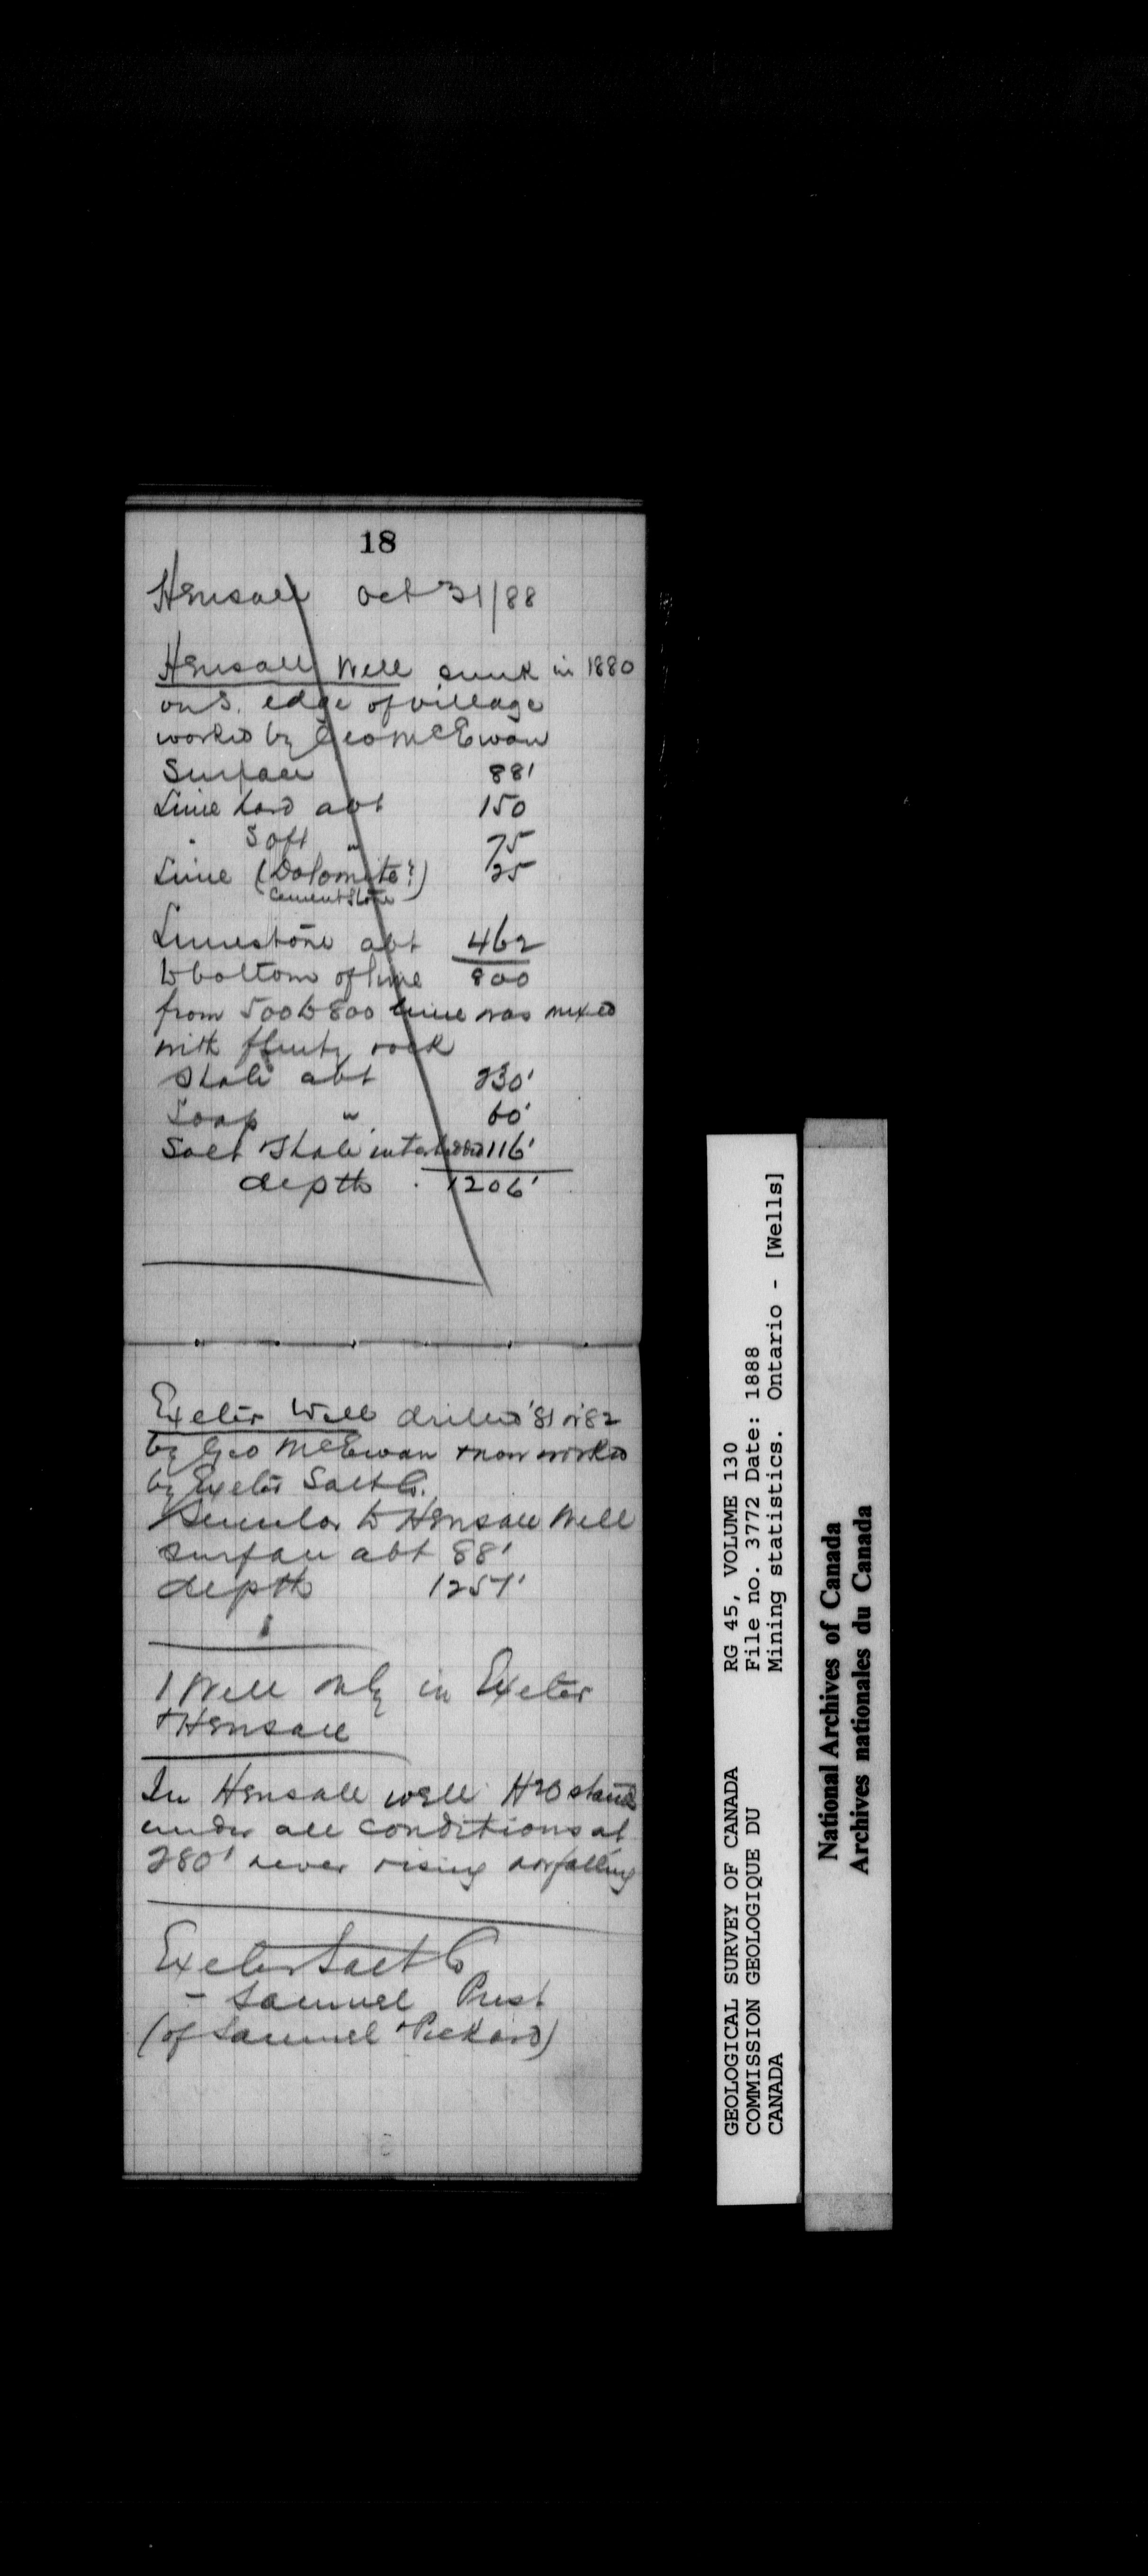 18
Hensall Oct 31/88
Hensall Well sunk in 1880
on S. edge of village
worked by Geo McEwan
Surface 88'
Lime hard abt 150
" Soft " 75
Lime (Dolomite?) 25
Cement Stone
Limestone abt 462
to bottom of lime 800
from 500 to 800 lime was mixed
with flinty rock
Shale abt 230'
Soap " 60'
Salt & Shale interbedded 116'
depth 1206'
Exeter Well drilled '81 or '82
by Geo McEwan & now worked
by Exeter Salt Co.
Similar to Hensall Well
surface abt 88'
depth 1251'
1 Well only in Exeter
& Hensall
In Hensall well H2O stands
under all conditions at
280' never rising nor falling
Exeter Salt Co
- Samwel Prest
(of Samwel & Pickard)
GEOLOGICAL SURVEY OF CANADA RG 45, VOLUME 130
COMMISSION GEOLOGIQUE DU File no. 3772 Date: 1888
CANADA Mining statistics. Ontario - [Wells]
National Archives of Canada
Archives nationales du Canada